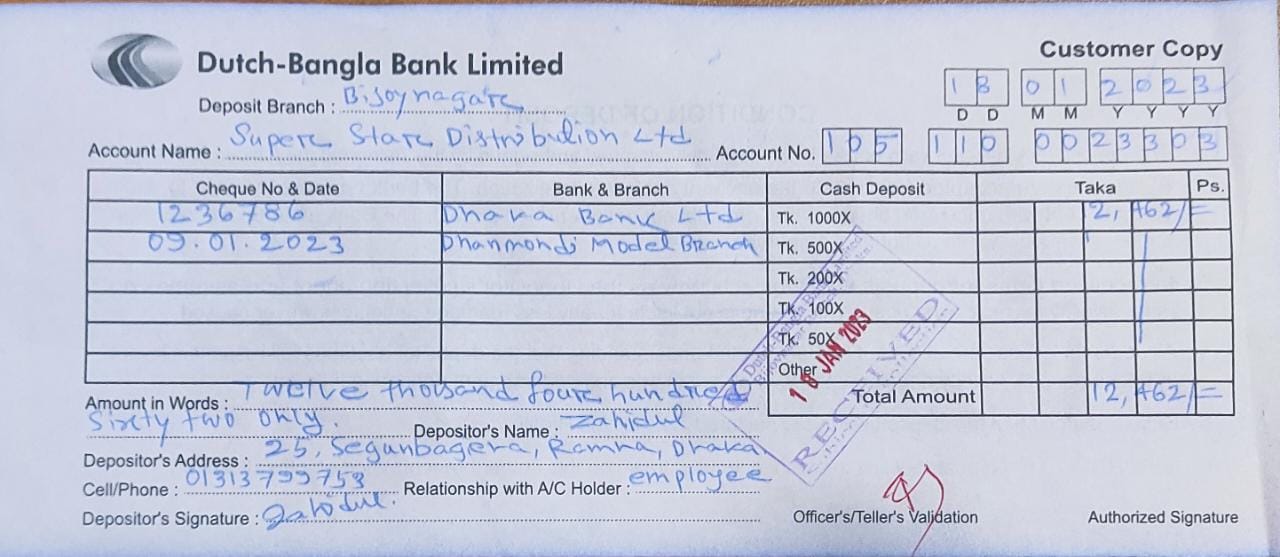 Customer Copy
Dutch-Bangla Bank Limited
18 01 2023
D D M M Y Y Y Y
Deposit Branch : Bijoynagar
Account Name : Super Star Distribution Ltd Account No. 105 110 0023303
Cheque No & Date Bank & Branch Cash Deposit Taka Ps.
1236786 Dhaka Bank Ltd Tk. 1000X 12,462/=
09.01.2023 Dhanmondi Model Branch Tk. 500X
Tk. 200X
Tk. 100X
Tk. 50X
Other
18 JAN 2023
RECEIVED
Amount in Words : Twelve thousand four hundred Total Amount 12,462/=
Sixty two only. Depositor's Name : Zahidul
Depositor's Address : 25, Segunbagera, Ramna, Dhaka.
Cell/Phone : 01313799753 Relationship with A/C Holder : employee
Depositor's Signature : Zahidul. Officer's/Teller's Validation Authorized Signature